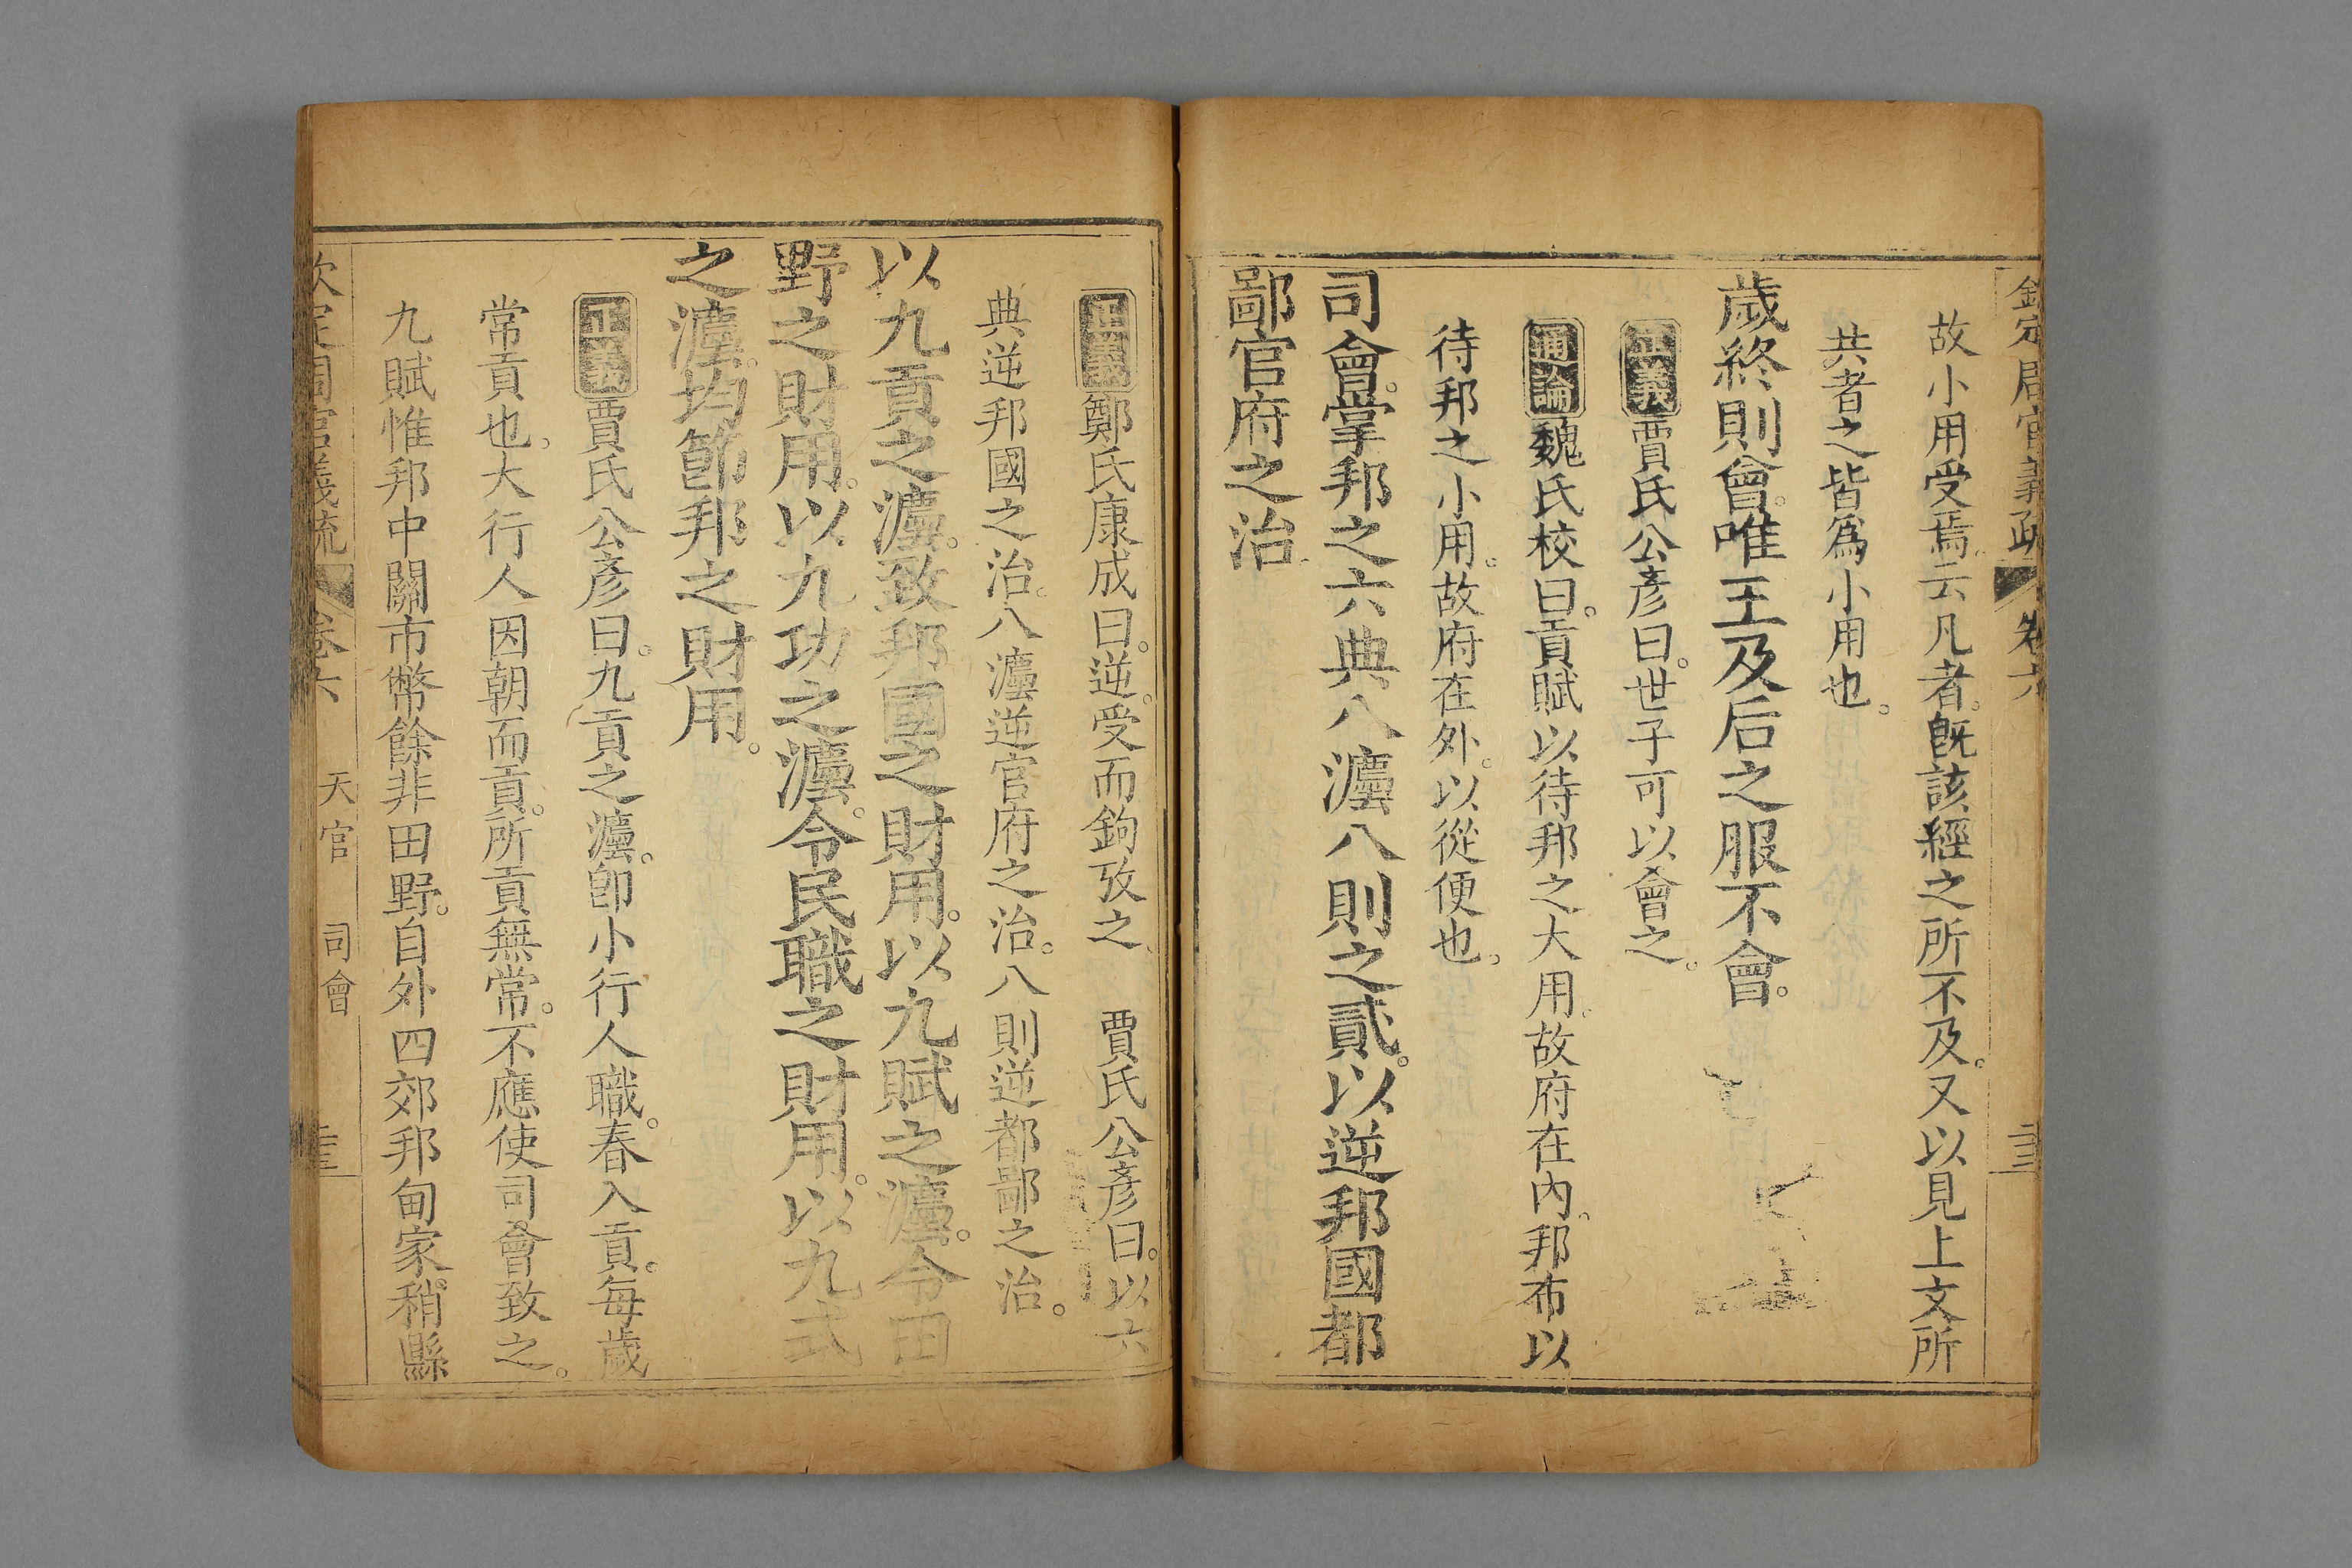 欽定周官義疏 卷六
故小用受焉。云凡者。旣該經之所不及。又以見上文所
共者之皆爲小用也。
歲終則會。唯王及后之服不會。
正義賈氏公彥曰。世子可以會之。
通論魏氏校曰。貢賦以待邦之大用。故府在內。邦布以
待邦之小用。故府在外。以從便也。
司會。掌邦之六典八灋八則之貳。以逆邦國都
鄙官府之治。
正義鄭氏康成曰。逆。受而鉤攷之。 賈氏公彥曰。以六
典逆邦國之治。八灋逆官府之治。八則逆都鄙之治。
以九貢之灋。致邦國之財用。以九賦之灋。令田
野之財用。以九功之灋。令民職之財用。以九式
之灋。均節邦之財用。
正義賈氏公彥曰。九貢之灋。卽小行人職。春入貢。每歲
常貢也。大行人因朝而貢。所貢無常。不應使司會致之。
九賦惟邦中關市幣餘非田野。自外四郊邦甸家稍縣
欽定周官義疏 卷六 天官 司會